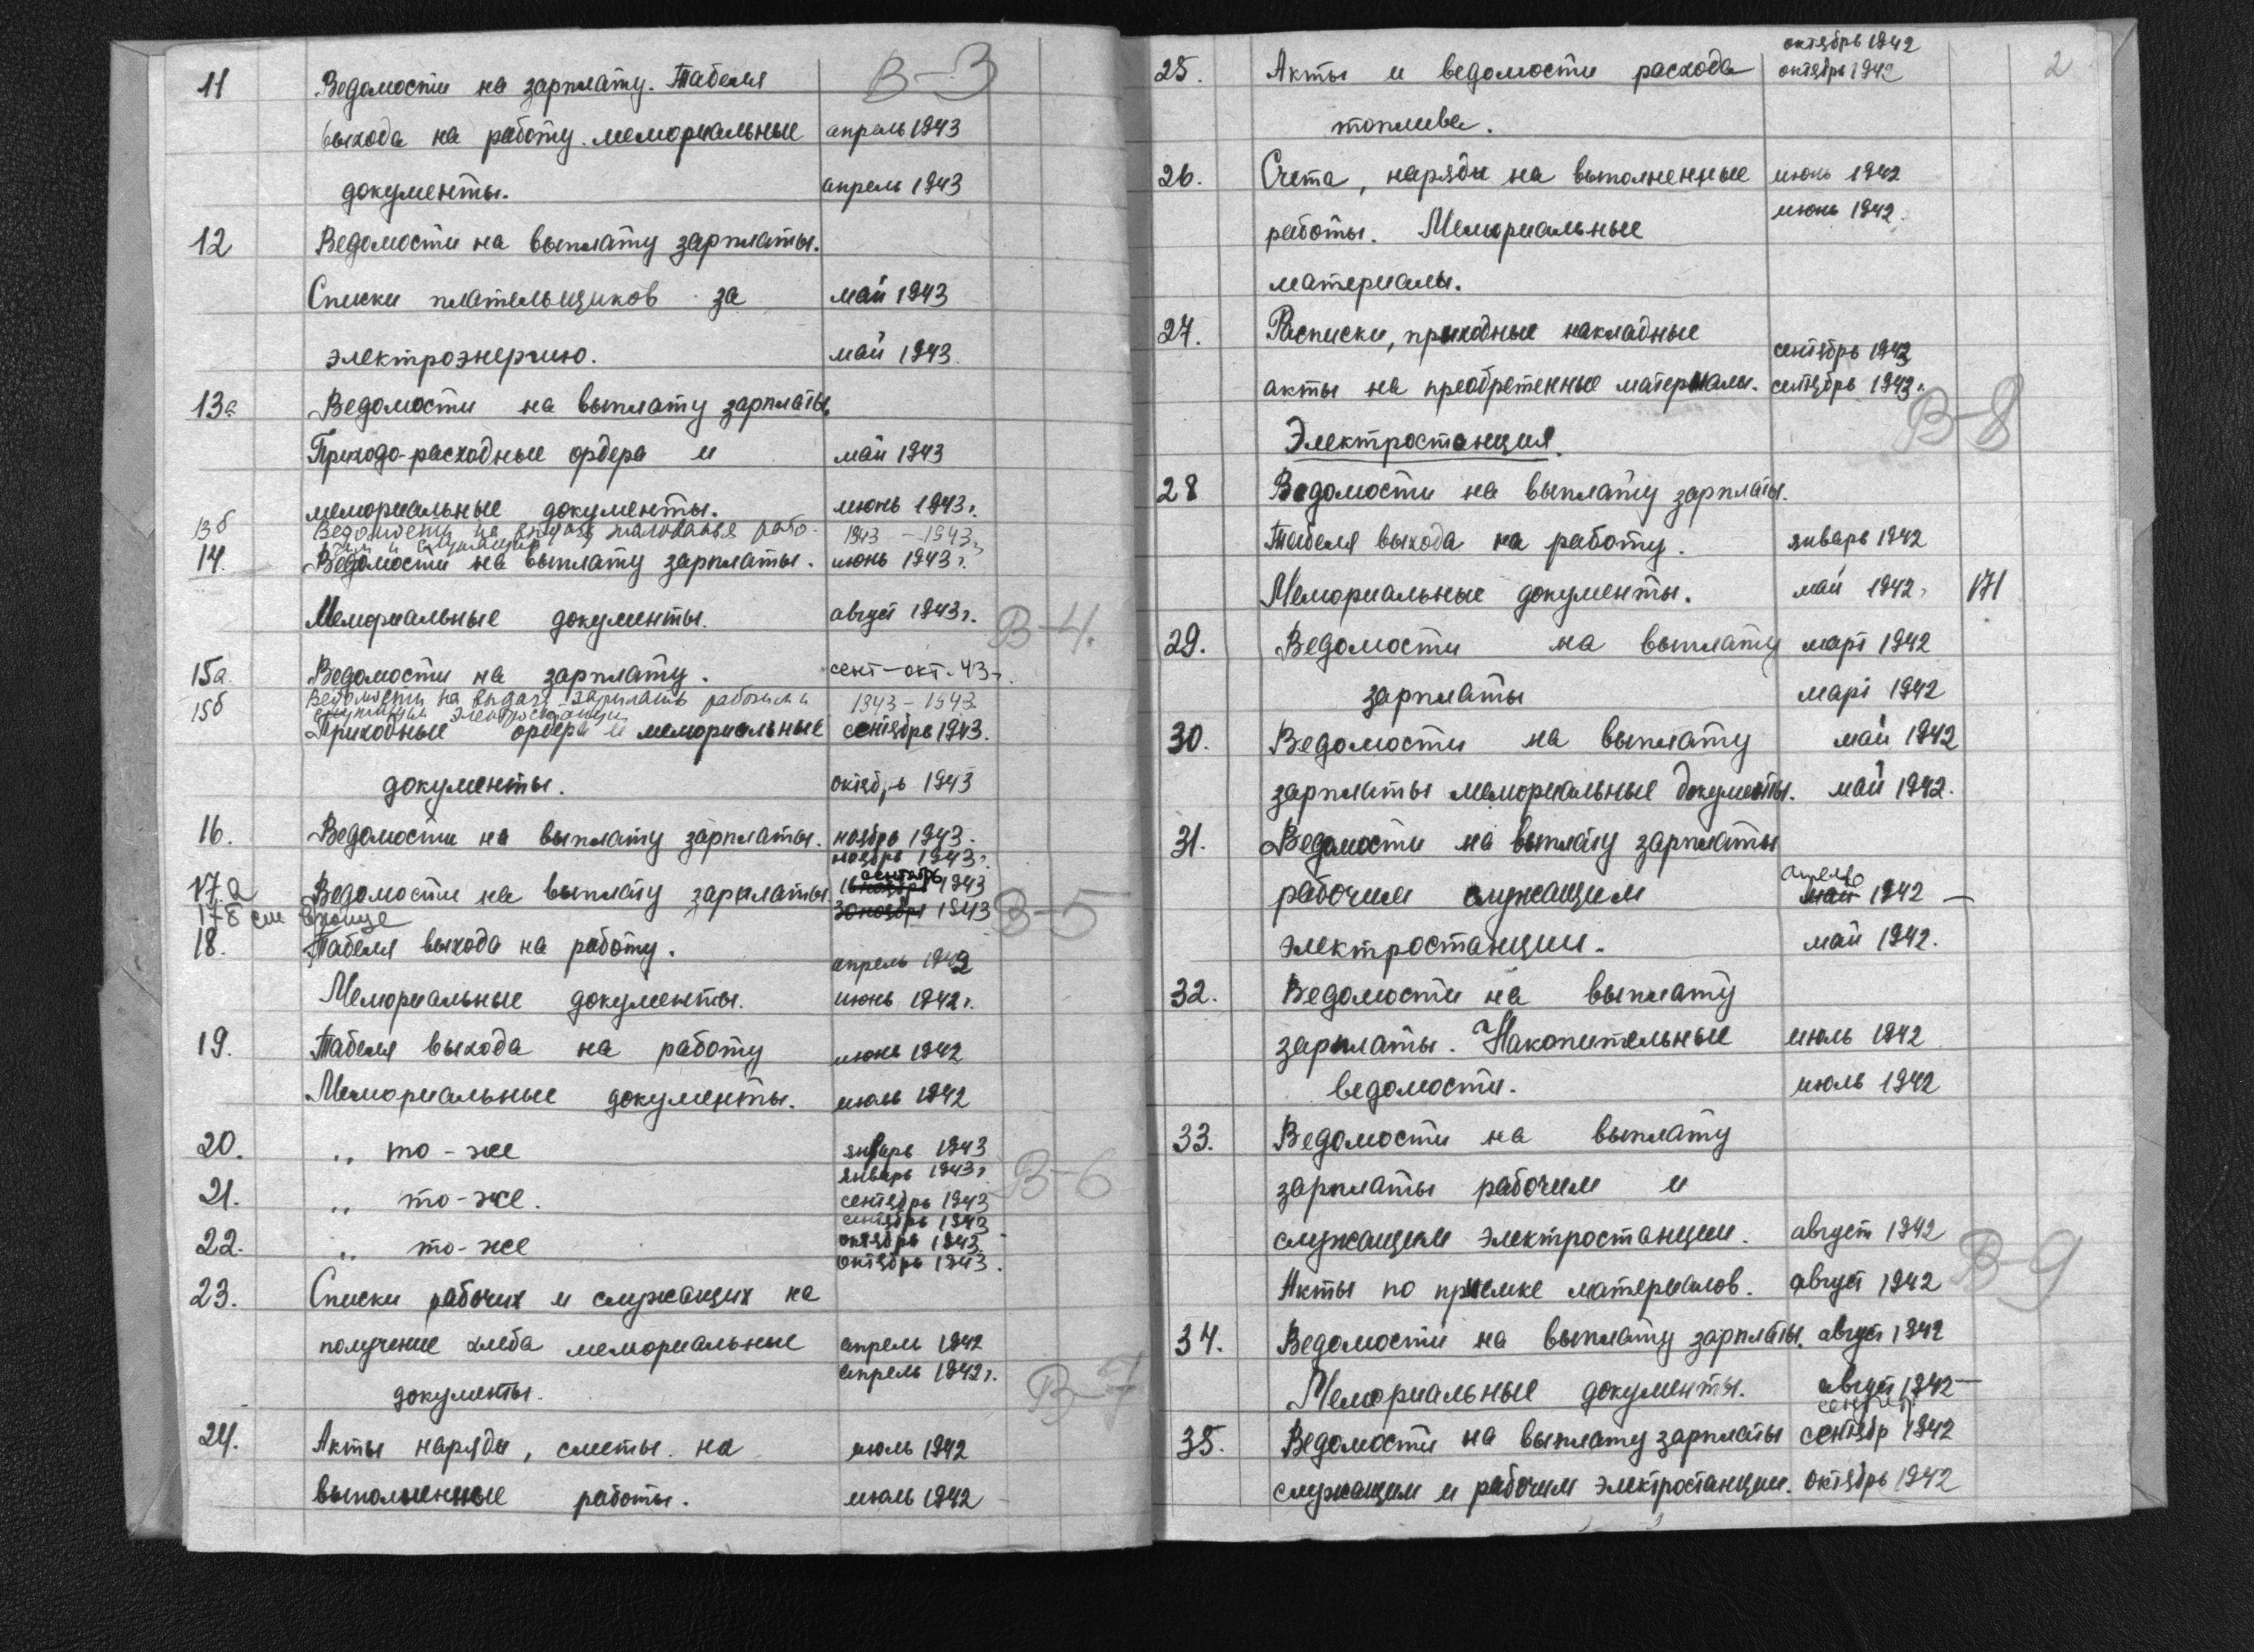 В-3
11 Ведомости на зарплату. Табеля
выхода на работу. мемориальные апрель 1943
документы. апрель 1943
12 Ведомости на выплату зарплаты.
Списки плательщиков за май 1943
электроэнергию. май 1943.
13а Ведомости на выплату зарплаты
Приходо-расходные ордера и май 1943
мемориальные документы. июнь 1943г.
13б Ведомости на выдачу жалованья рабо- 1943 - 1943г
чим и служащим
14. Ведомости на выплату зарплаты. июнь 1943г.
Мемориальные документы. август 1943г.
В-4.
15а. Ведомости на зарплату. сент-окт. 43г.
15б Ведомости на выдачу зарплаты рабочим и 1943 - 1943
служащим электростанции
Приходные ордера и мемориальные сентябрь 1943.
документы. октябрь 1943
16. Ведомости на выплату зарплаты. ноябрь 1943.
ноябрь 1943г.
17.а Ведомости на выплату зарплаты. сентябрь
16 ноября 1943
30 ноября 1943
В-5
17б см в конце
18. Табеля выхода на работу.
апрель 1942
Мемориальные документы. июнь 1942г.
19. Табеля выхода на работу июнь 1942
Мемориальные документы. июль 1942
20. „ то-же январь 1943
январь 1943г.
В-6
21. „ то-же. сентябрь 1943
сентябрь 1943
22. „ то-же октябрь 1943.
октябрь 1943.
23. Списки рабочих и служащих на
получение хлеба мемориальные апрель 1942
апрель 1942г.
документы.
В-7
24. Акты наряды, сметы на июль 1942
выполненные работы. июль 1942
2
октябрь 1942
25. Акты и ведомости расхода октябрь 1942
топлива.
26. Счета, наряды на выполненные июнь 1942
июнь 1942.
работы. Мемориальные
материалы.
27. Расписки, приходные накладные
сентябрь 1942
акты на преобретенные материалы. сентябрь 1942г.
В-8
Электростанция.
28 Ведомости на выплату зарплаты.
Табеля выхода на работу. январь 1942
Мемориальные документы. май 1942г 171
29. Ведомости на выплату март 1942
зарплаты март 1942
30. Ведомости на выплату май 1942
зарплаты мемориальные документы. май 1942.
31. Ведомости на выплату зарплаты
апрель
рабочим служащим май 1942 -
электростанции. май 1942.
32. Ведомости на выплату
зарплаты. Накопительные июль 1942
ведомости. июль 1942
33. Ведомости на выплату
зарплаты рабочим и
служащим электростанции. август 1942
В-9
Акты по приемке материалов. август 1942
34. Ведомости на выплату зарплаты. август 1942
Мемориальные документы. август 1942 -
35. Ведомости на выплату зарплаты сентябр 1942
служащим и рабочим электростанции. октябрь 1942